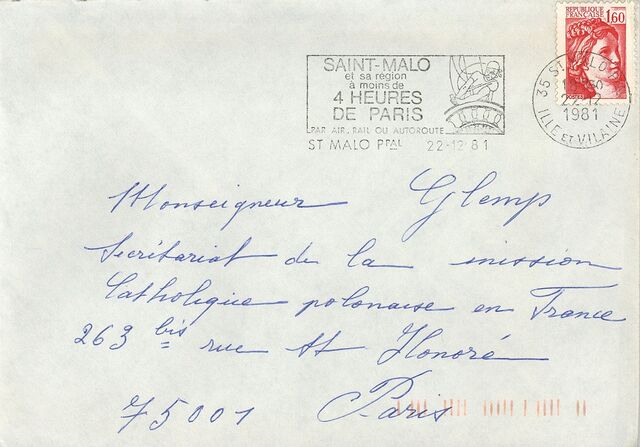 RÉPUBLIQUE
FRANÇAISE 1,60
SAINT-MALO
et sa région
à moins de
4 HEURES
DE PARIS
PAR AIR, RAIL OU AUTOROUTE
ST MALO PPAL 22-12-81
35 ST MALO
22-12
1981
ILLE ET VILAINE
Monseigneur Glemp
Secrétariat de la mission
Catholique polonaise en France
263 bis rue St Honoré
75001 Paris